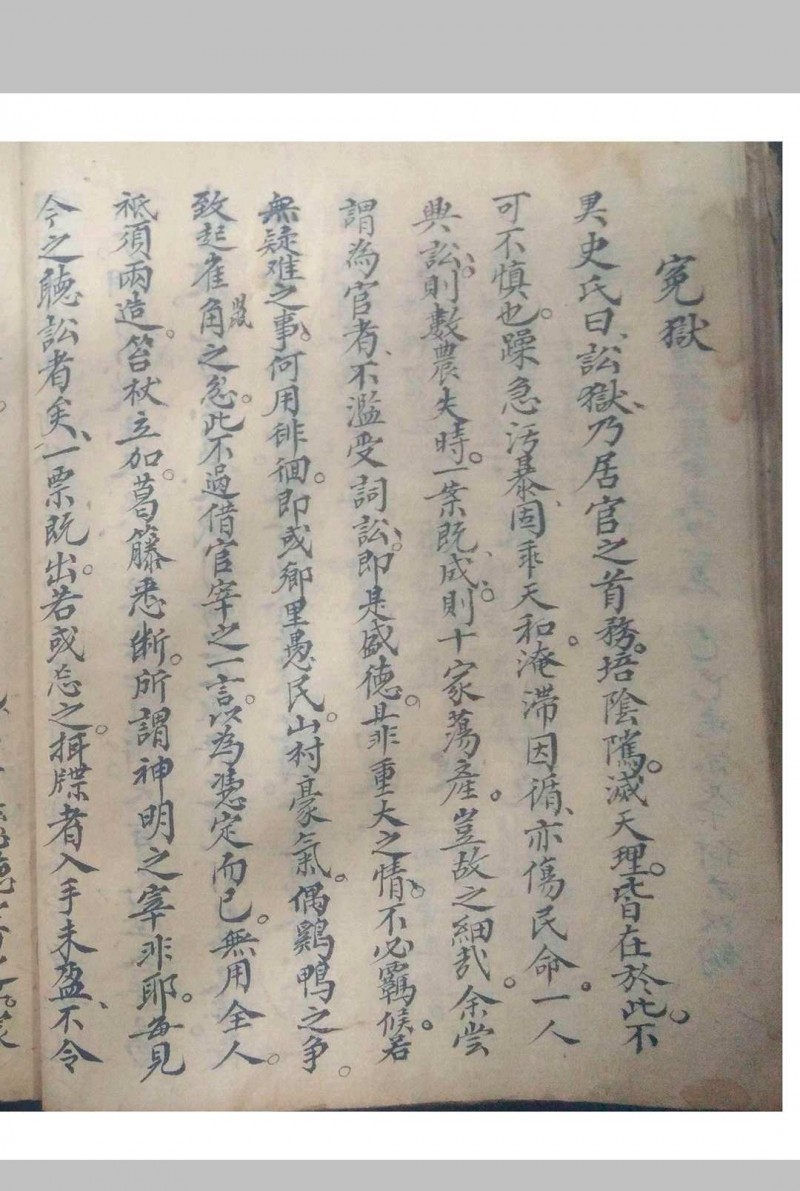 冤獄
異史氏曰、訟獄、乃居官之首務。培陰隲。滅天理。皆在於此。不
可不慎也。躁急污暴、固乖天和。淹滯因循、亦傷民命。一人
興訟。則數農失時。一案既成。則十家蕩產。豈故之細哉。余嘗
謂為官者、不濫受詞訟、即是盛德。且非重大之情。不必羈候。若
無疑难之事。何用徘徊。即或鄉里愚民。山村豪氣。偶鷄鴨之争。
致起雀角鼠之忿。此不過借官宰之一言。以為憑定而已。無用全人。
祗須兩造。笞杖立加。葛籐悉断。所謂神明之宰非耶。每見
今之聽訟者矣、一票既出。若或忘之。攝牒者入手未盈、不令